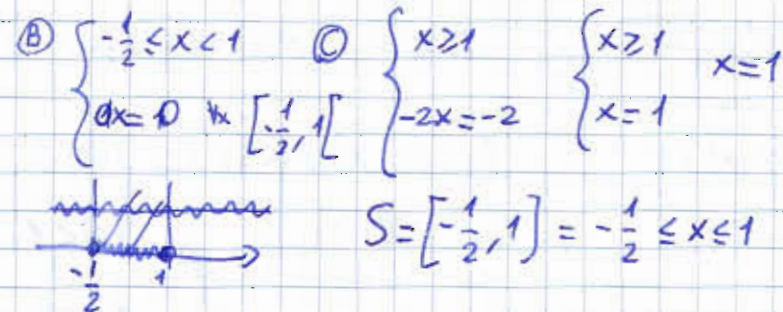 Ⓑ { -1/2 ≤ x < 1
0x = 0 ∀x [-1/2, 1[
Ⓒ { x ≥ 1
-2x = -2
{ x ≥ 1
x = 1
x = 1
-1/2 1
S = [-1/2, 1] = -1/2 ≤ x ≤ 1